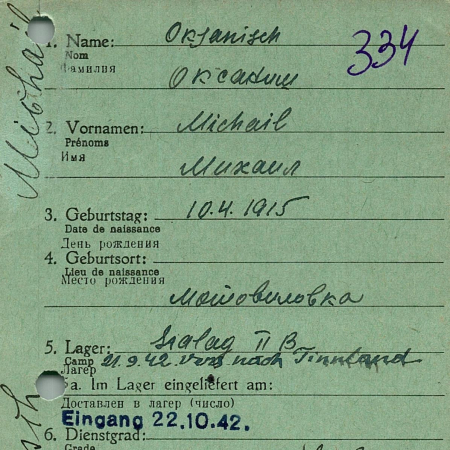 Michail
334
1. Name: Okjanisch
Nom
Фамилия
Оксаниш
2. Vornamen: Michail
Prénoms
Имя
Михаил
3. Geburtstag: 10.4.1915
Date de naissance
День рождения
4. Geburtsort:
Lieu de naissance
Место рождения
Мотовиловка
5. Lager: Stalag II B
Camp
21.9.42 nach Finnland
Лагер
5a. Im Lager eingeliefert am:
Доставлен в лагер (число)
Eingang 22.10.42.
6. Dienstgrad:
Grade